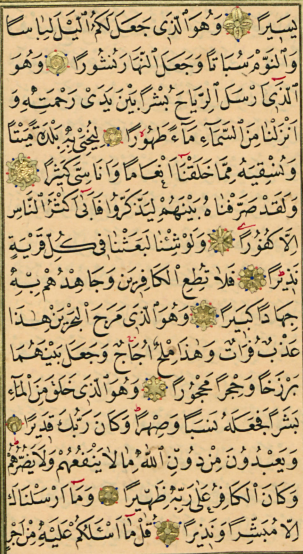 يَسِيرًا وَهُوَ الَّذِى جَعَلَ لَكُمُ الَّيْلَ لِبَاسًا
وَالنَّوْمَ سُبَاتًا وَجَعَلَ النَّهَارَ نُشُورًا وَهُوَ
الَّذِى اَرْسَلَ الرِّيَاحَ بُشْرًا بَيْنَ يَدَىْ رَحْمَتِهٖ وَ
اَنْزَلْنَا مِنَ السَّمَآءِ مَآءً طَهُورًا لِنُحْيِىَ بِهٖ بَلْدَةً مَيْتًا
وَنُسْقِيَهُ مِمَّا خَلَقْنَآ اَنْعَامًا وَاَنَاسِىَّ كَثِيرًا
وَلَقَدْ صَرَّفْنَاهُ بَيْنَهُمْ لِيَذَّكَّرُوا فَاَبٰٓى اَكْثَرُ النَّاسِ
اِلَّا كُفُورًا وَلَوْ شِئْنَا لَبَعَثْنَا فِى كُلِّ قَرْيَةٍ
نَذِيرًا فَلَا تُطِعِ الْكَافِرِينَ وَجَاهِدْهُمْ بِهٖ
جِهَادًا كَبِيرًا وَهُوَ الَّذِى مَرَجَ الْبَحْرَيْنِ هٰذَا
عَذْبٌ فُرَاتٌ وَهٰذَا مِلْحٌ اُجَاجٌ وَجَعَلَ بَيْنَهُمَا
بَرْزَخًا وَحِجْرًا مَحْجُورًا وَهُوَ الَّذِى خَلَقَ مِنَ الْمَآءِ
بَشَرًا فَجَعَلَهُ نَسَبًا وَصِهْرًا وَكَانَ رَبُّكَ قَدِيرًا
وَيَعْبُدُونَ مِنْ دُونِ اللّٰهِ مَا لَا يَنْفَعُهُمْ وَلَا يَضُرُّهُمْ
وَكَانَ الْكَافِرُ عَلٰى رَبِّهٖ ظَهِيرًا وَمَآ اَرْسَلْنَاكَ
اِلَّا مُبَشِّرًا وَنَذِيرًا قُلْ مَآ اَسْئَلُكُمْ عَلَيْهِ مِنْ اَجْرٍ